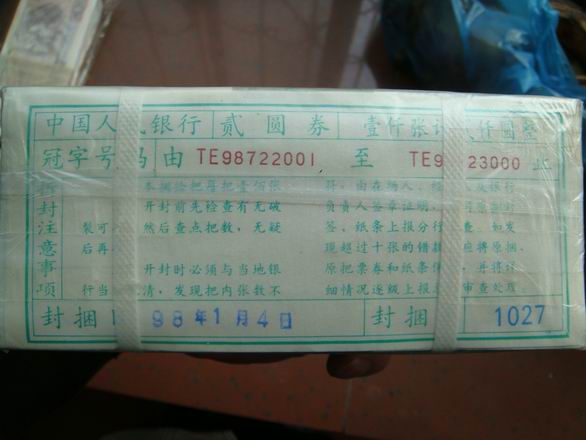 中国人 银行 贰圆券 壹仟张 仟圆整
冠字号 由 TE98722001 至 TE9 23000 止
拆封注意事项
本捆拾把每把壹佰张
开封前先检查有无破
装 可
然后查点把数,无疑
后 再
开封时必须与当地银
行当 清,发现把内张数不
符,由在场人、经 及银行
负责人签章证明,
签、纸条上报分行 查。如发
现超过十张的错款 应将原捆、
原把票券和纸条 ,并将详
细情况逐级上报 审查处理
封捆 98年1月4日 封捆 1027